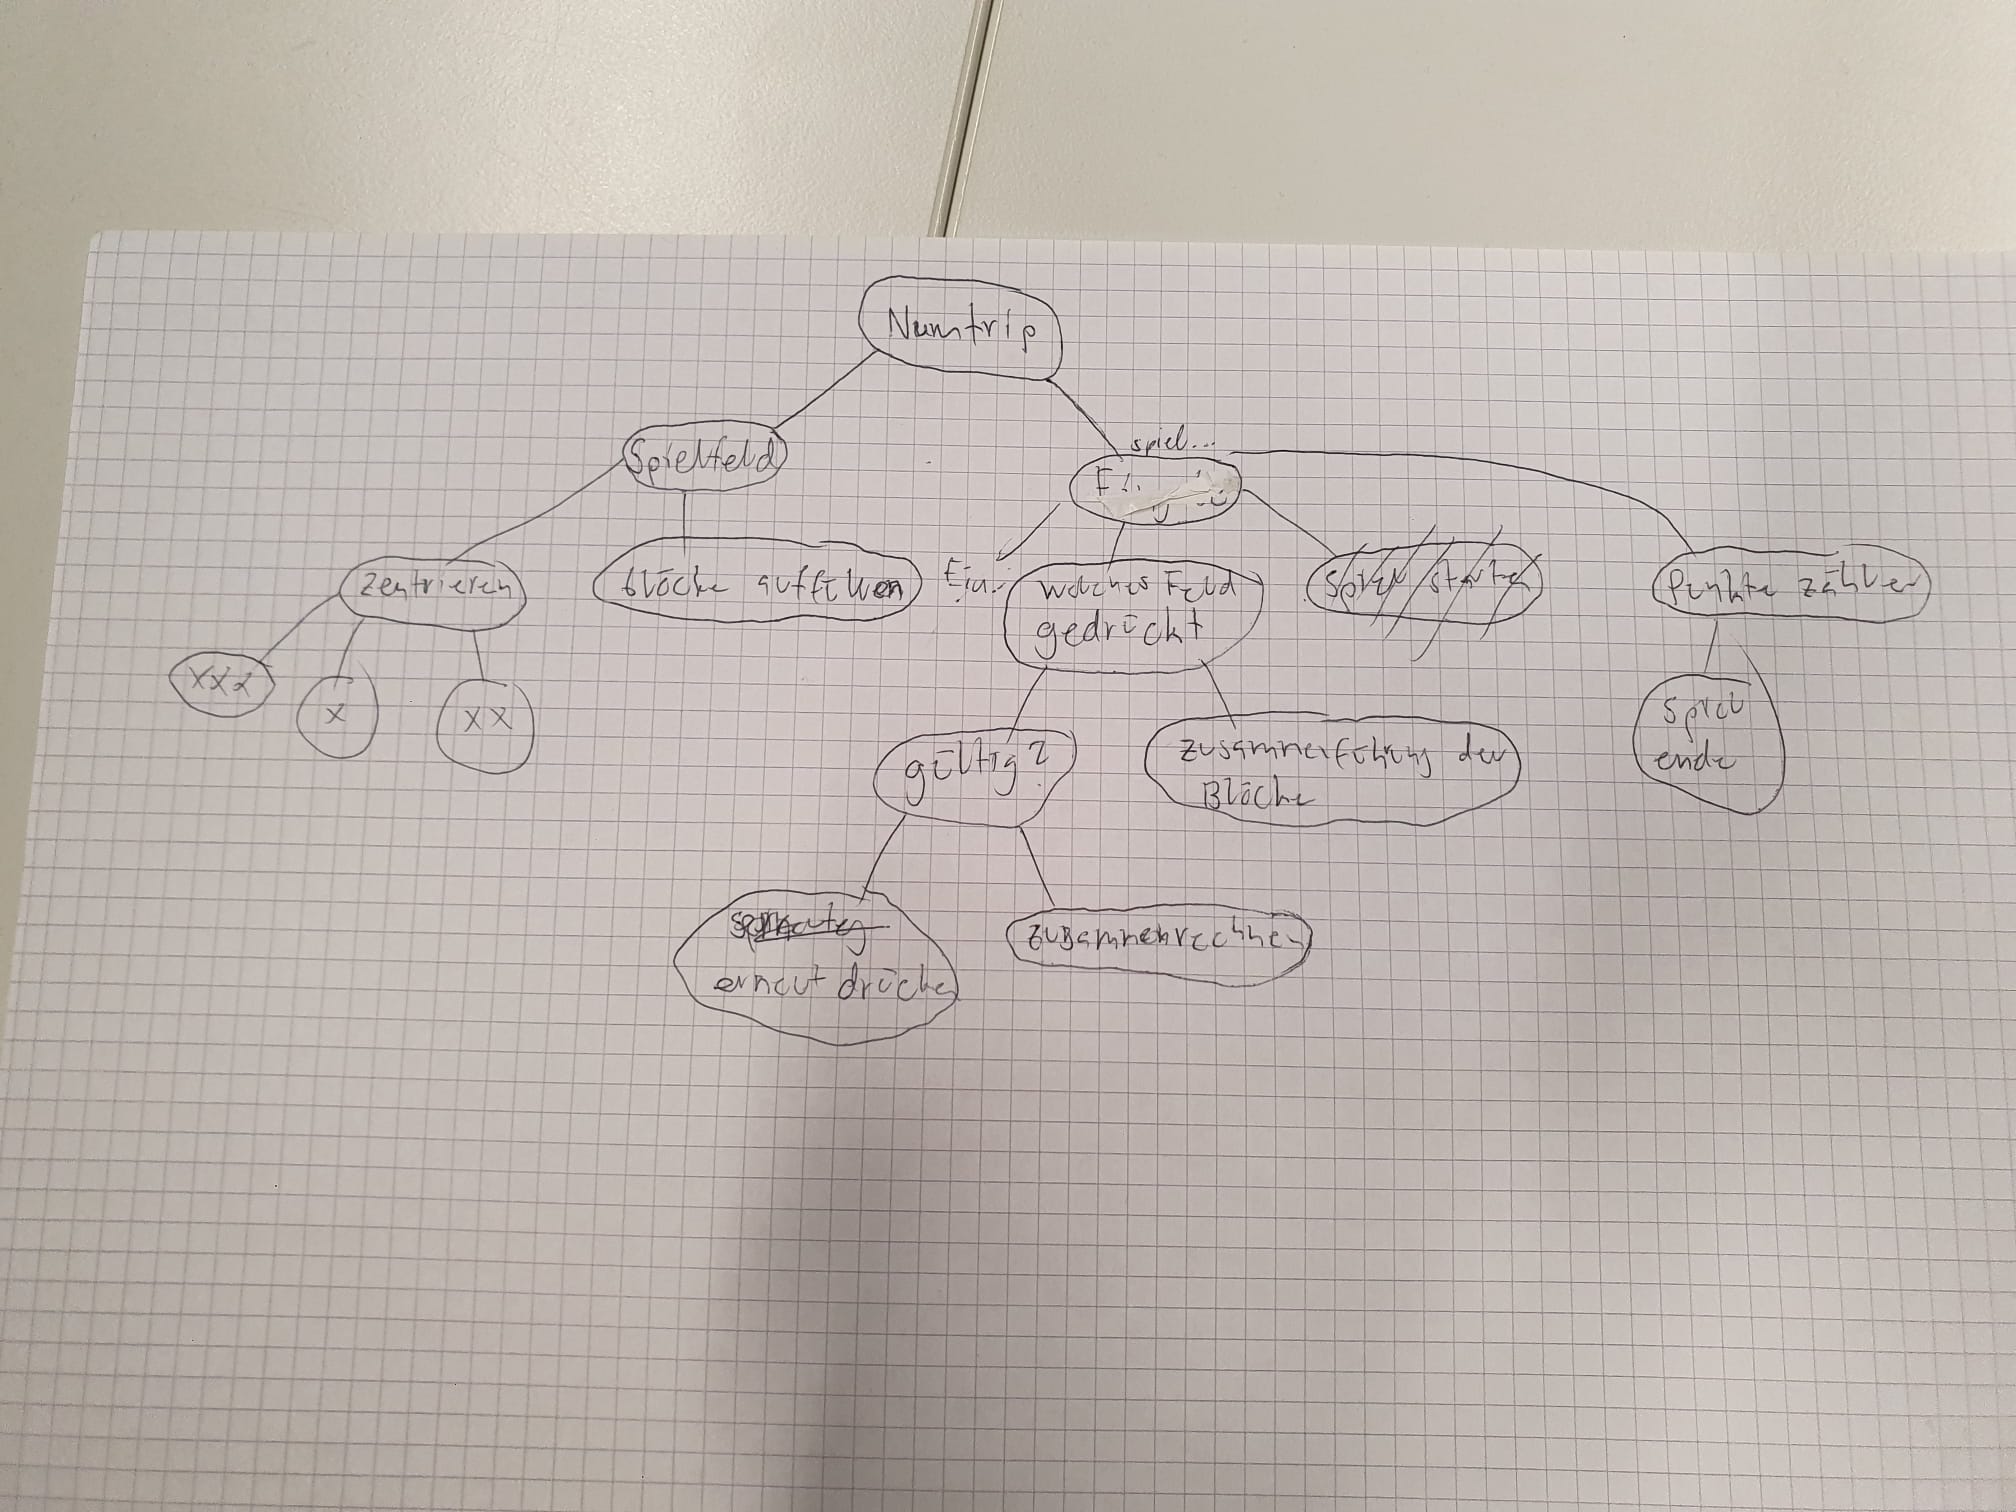 Numtrip
Spielfeld
spiel...
zentrieren
Blöcke auffüllen
Ein..
welches Feld
gedrückt
Spiel starten
Punkte zähler
xxx
x
xx
gültig?
zusammenführung der
Blöcke
Spiel
ende
erneut drücken
zusammenrechnen